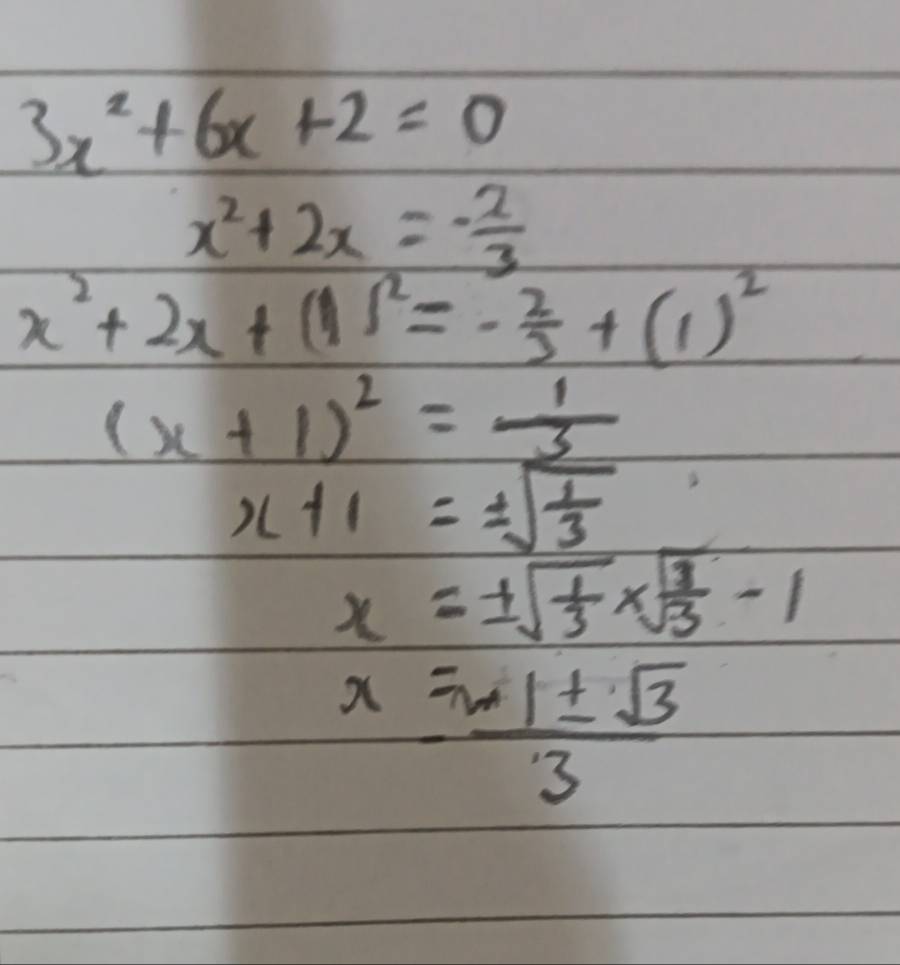 3x² + 6x + 2 = 0
x² + 2x = -2/3
x² + 2x + (1)² = -2/3 + (1)²
(x + 1)² = 1/3
x + 1 = ±√(1/3)
x = ±√(1/3) × √(3/3) - 1
x = -1 ± √3 / 3